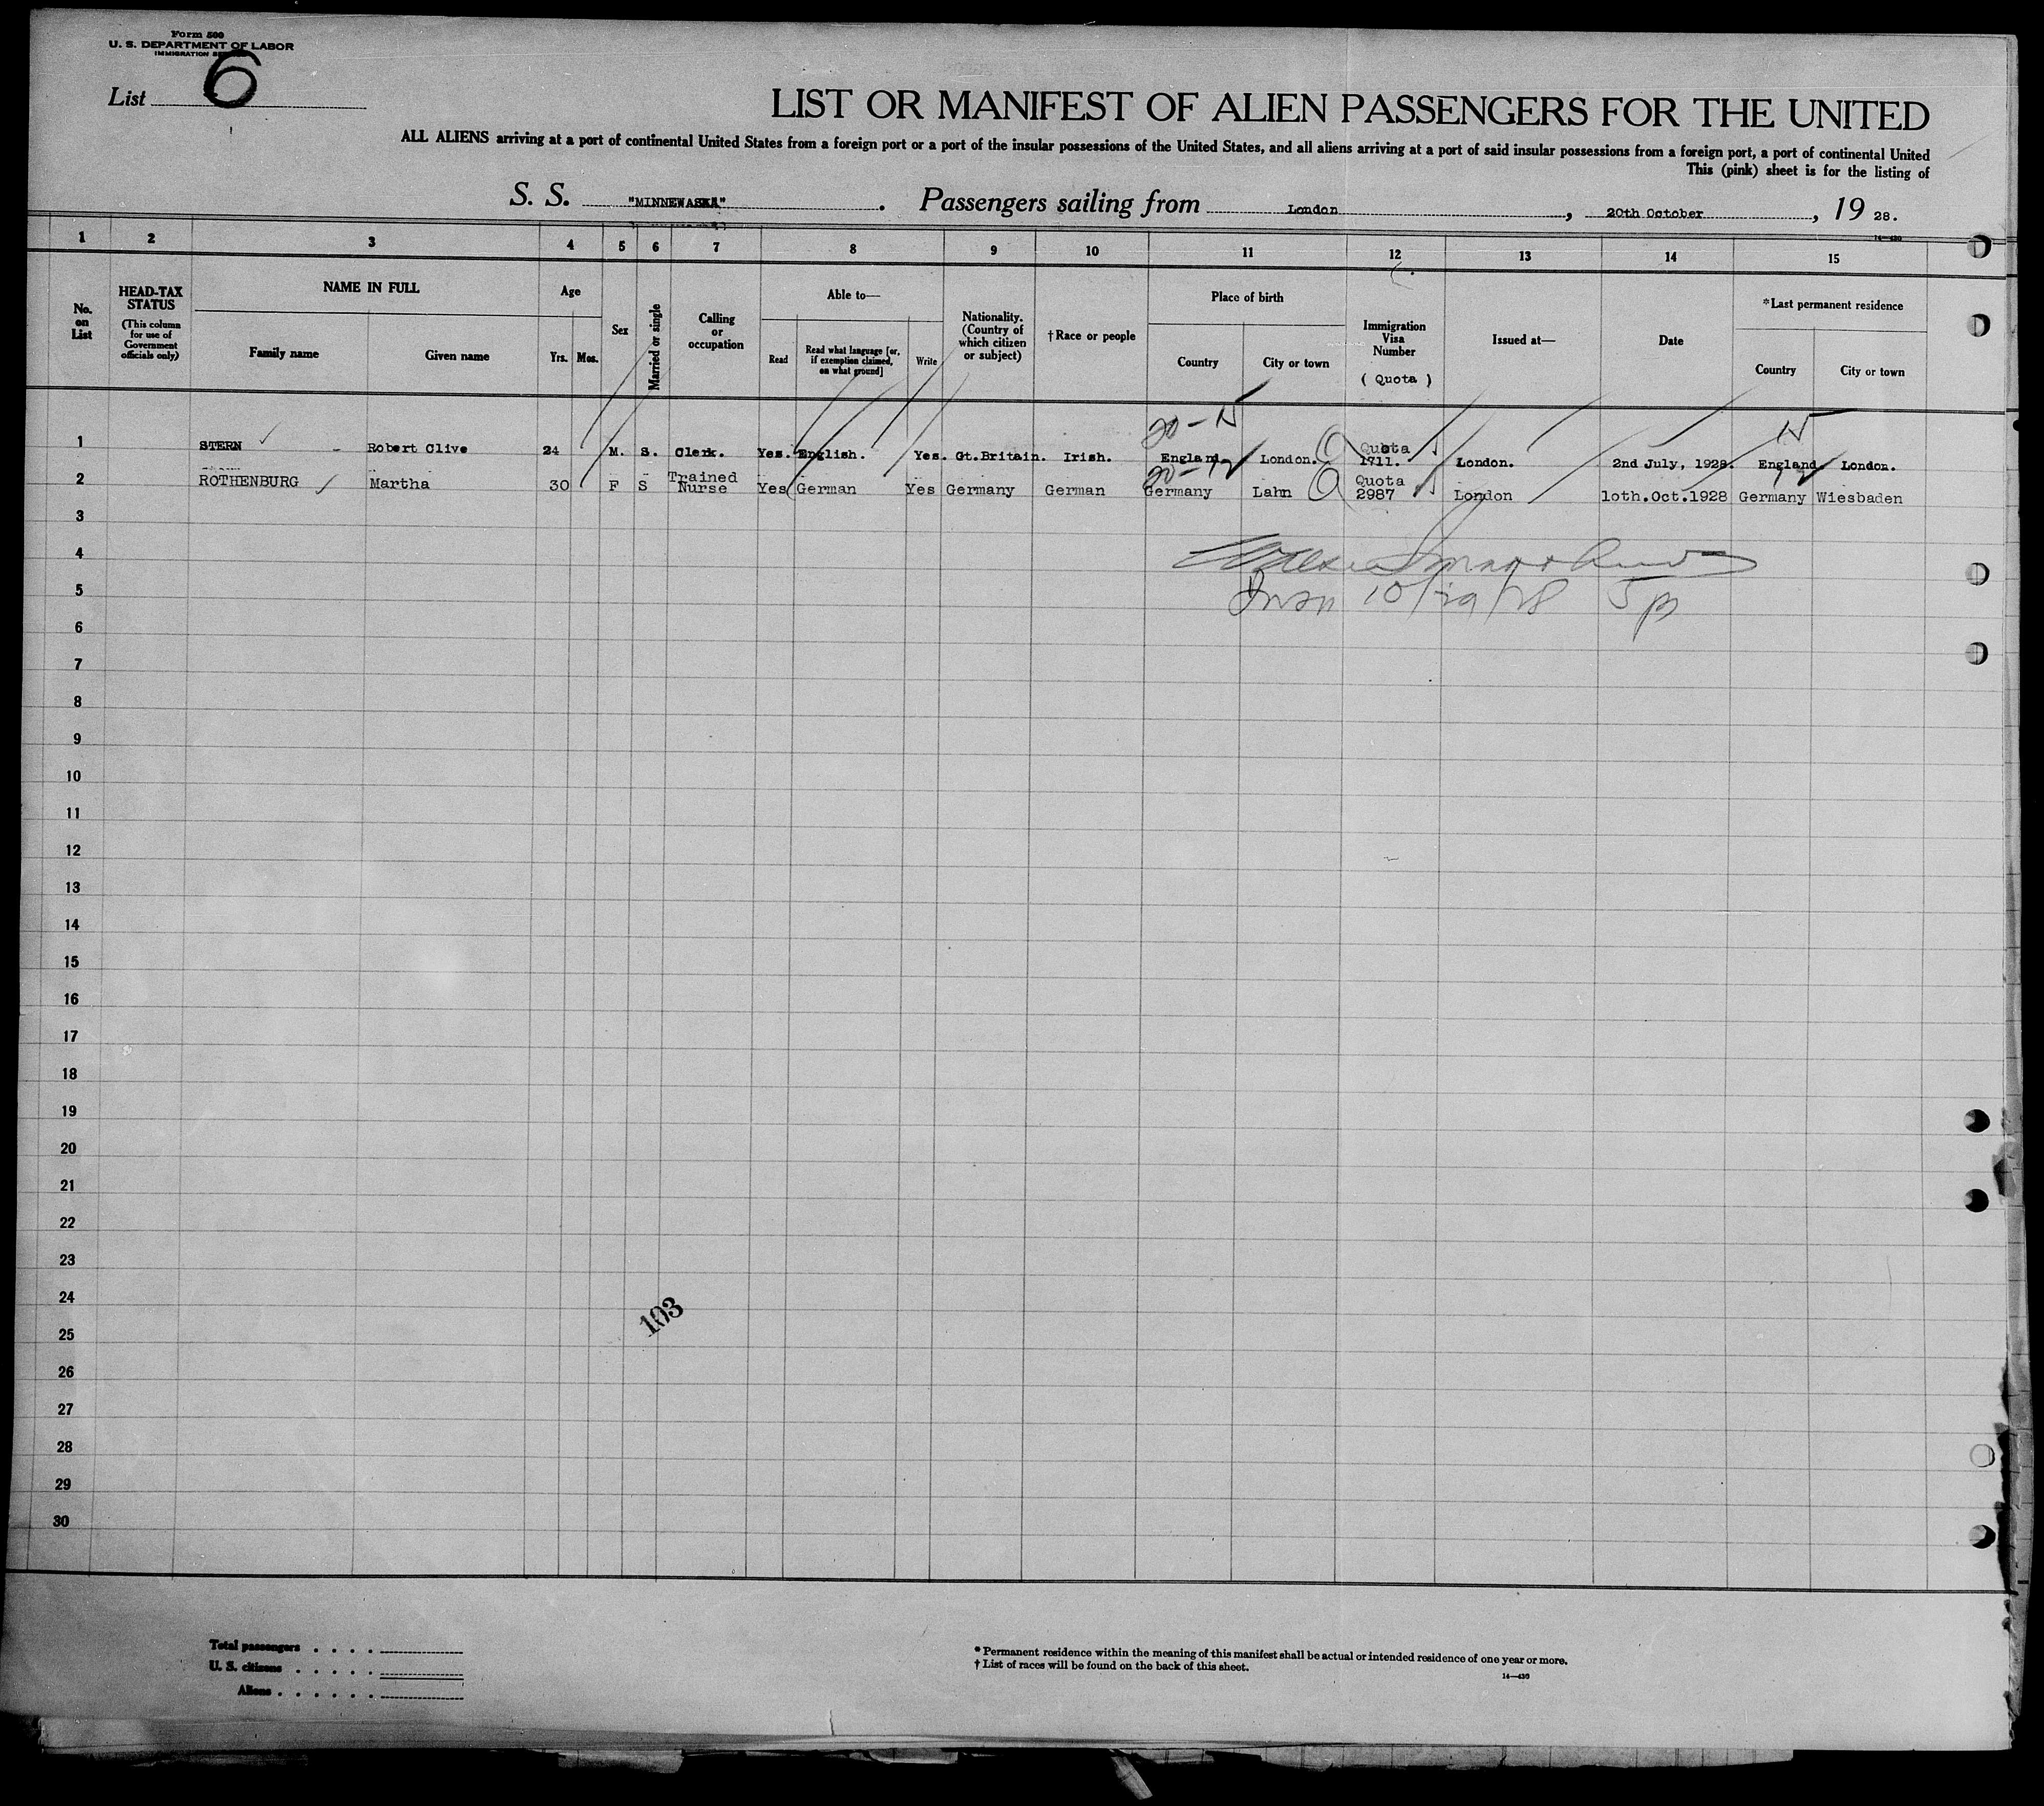 Form 500
U. S. DEPARTMENT OF LABOR
IMMIGRATION
List 6
LIST OR MANIFEST OF ALIEN PASSENGERS FOR THE UNITED
ALL ALIENS arriving at a port of continental United States from a foreign port or a port of the insular possessions of the United States, and all aliens arriving at a port of said insular possessions from a foreign port, a port of continental United
This (pink) sheet is for the listing of
S. S. "MINNEWASKA". Passengers sailing from London, 20th October, 19 28.
14—430
1 2 3 4 5 6 7 8 9 10 11 12 13 14 15
No. on List
HEAD-TAX STATUS
(This column for use of Government officials only)
NAME IN FULL
Family name Given name
Age
Yrs. Mos.
Sex
Married or single
Calling or occupation
Able to—
Read
Read what language [or, if exemption claimed, on what ground]
Write
Nationality. (Country of which citizen or subject)
†Race or people
Place of birth
Country City or town
Immigration Visa Number
( Quota )
Issued at—
Date
*Last permanent residence
Country City or town
20-15 15
1 STERN Robert Clive 24 M. S. Clerk. Yes. English. Yes. Gt.Britain. Irish. England London. Quota 1711. London. 2nd July, 1928. England London.
20-12 12
2 ROTHENBURG Martha 30 F S Trained Nurse Yes German Yes Germany German Germany Lahn Quota 2987 London 10th.Oct.1928 Germany Wiesbaden
3
4
5 10/29/28 5p
6
7
8
9
10
11
12
13
14
15
16
17
18
19
20
21
22
23
24
103
25
26
27
28
29
30
Total passengers . . . .
U. S. citizens . . . . .
Aliens . . . . . .
* Permanent residence within the meaning of this manifest shall be actual or intended residence of one year or more.
† List of races will be found on the back of this sheet.
14—430